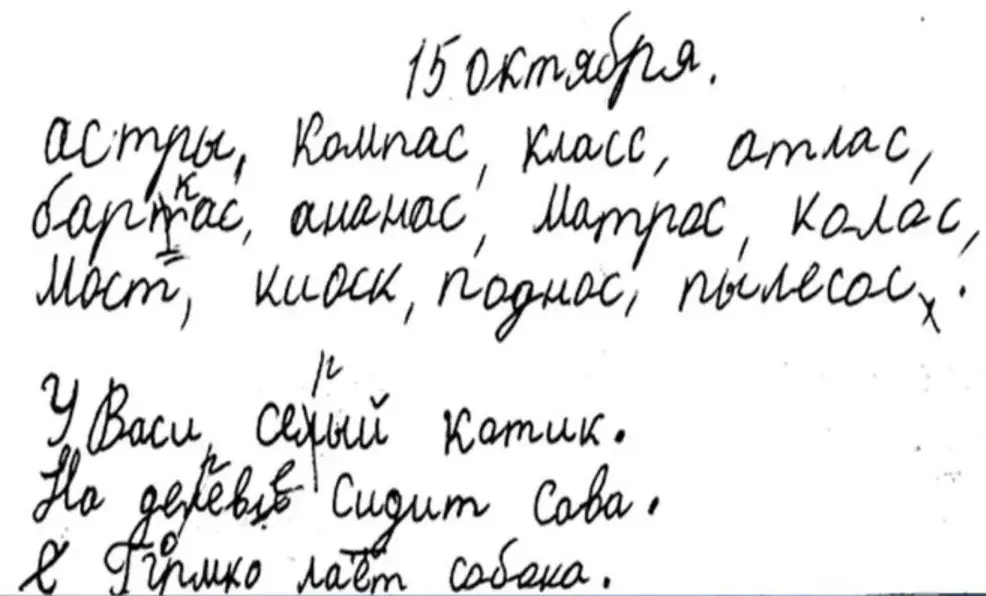 15 октября.
астры, компас, класс, атлас,
баркас, ананас, матрас, колос,
мост, киоск, поднос, пылесос.
У Васи серый котик.
На дереве сидит сова.
Громко лаёт собака.